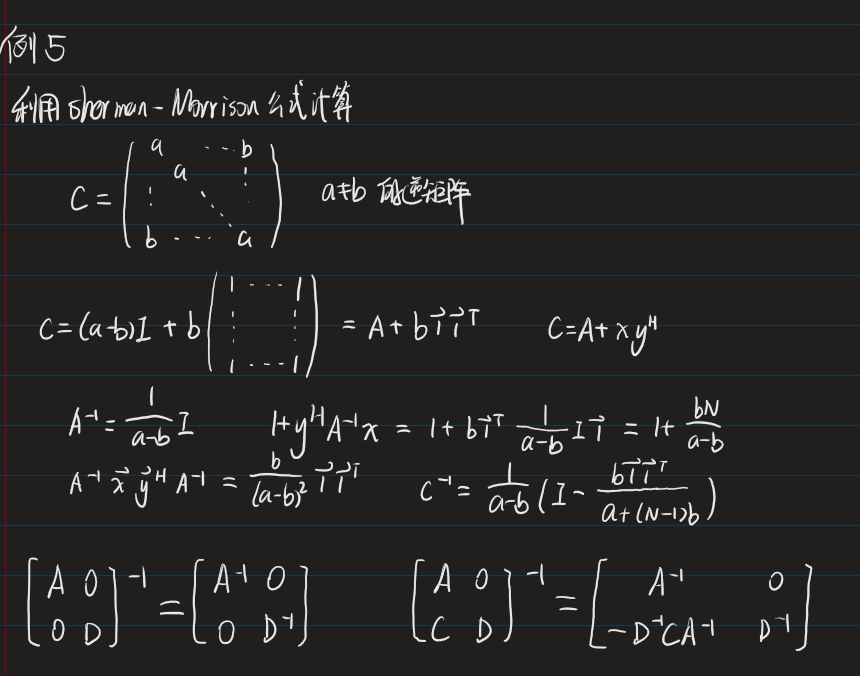 例5
利用Sherman-Morrison公式计算
C = \begin{pmatrix} a & \cdots & b \\ \vdots & a \ddots & \vdots \\ b & \cdots & a \end{pmatrix} a≠b 的逆矩阵
C=(a-b)I + b\begin{pmatrix} 1 & \cdots & 1 \\ \vdots & & \vdots \\ 1 & \cdots & 1 \end{pmatrix} = A + b\vec{1}\vec{1}^T C=A+xy^H
A^{-1} = \frac{1}{a-b}I 1+y^HA^{-1}x = 1+b\vec{1}^T\frac{1}{a-b}I\vec{1} = 1+\frac{bN}{a-b}
A^{-1}\vec{x}\vec{y}^HA^{-1} = \frac{b}{(a-b)^2}\vec{1}\vec{1}^T C^{-1} = \frac{1}{a-b}(I-\frac{b\vec{1}\vec{1}^T}{a+(N-1)b})
\begin{bmatrix} A & 0 \\ 0 & D \end{bmatrix}^{-1} = \begin{bmatrix} A^{-1} & 0 \\ 0 & D^{-1} \end{bmatrix} \begin{bmatrix} A & 0 \\ C & D \end{bmatrix}^{-1} = \begin{bmatrix} A^{-1} & 0 \\ -D^{-1}CA^{-1} & D^{-1} \end{bmatrix}